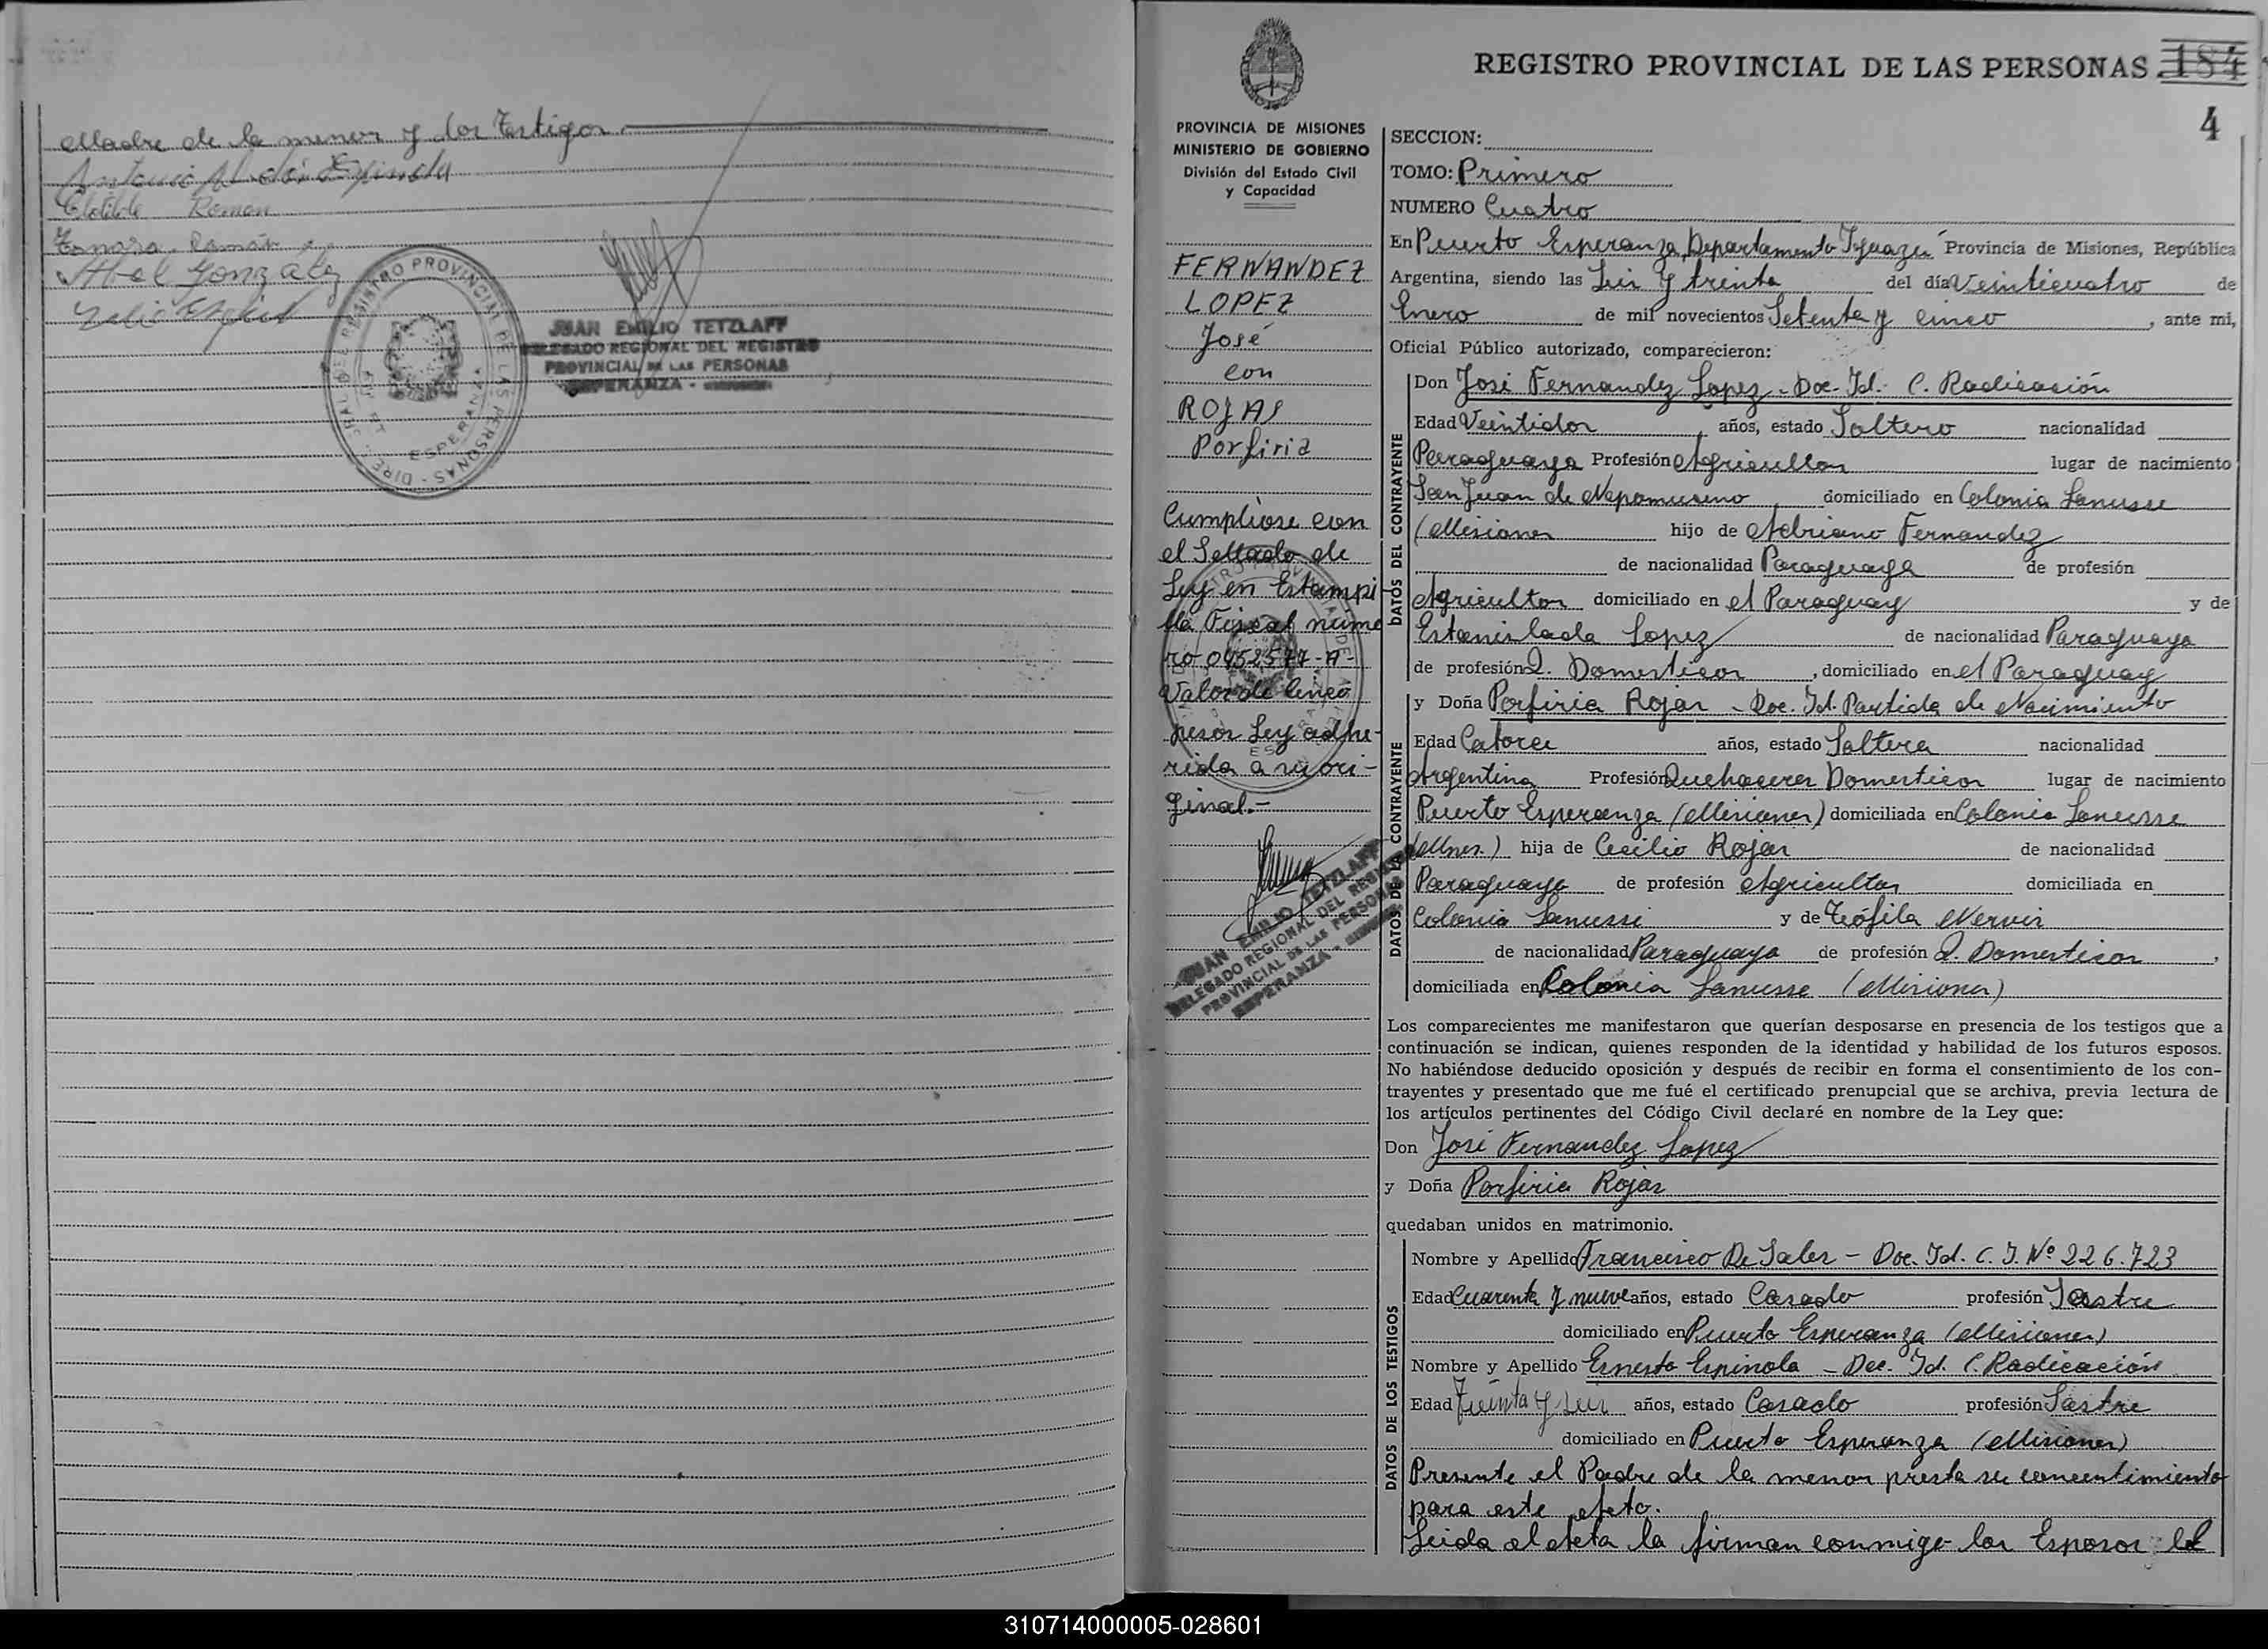 Madre de la menor y dos testigos.
Clotilde Roman
Zamora Ramón
Abel González
REGISTRO PROVINCIAL DE LAS PERSONAS
ESPERANZA
JUAN EMILIO TETZLAFF
DELEGADO REGIONAL DEL REGISTRO
PROVINCIAL DE LAS PERSONAS
ESPERANZA - MISIONES
REGISTRO PROVINCIAL DE LAS PERSONAS 184
4
PROVINCIA DE MISIONES
MINISTERIO DE GOBIERNO
División del Estado Civil
y Capacidad
FERNANDEZ
LOPEZ
José
con
ROJAS
Porfiria
Cumpliose con
el Sellado de
Ley en Estampi-
lla Fiscal núme
ro 0452577-A-
Valor de Cinco
pesos Ley adhe-
rida a su ori-
ginal.-
JUAN EMILIO TETZLAFF
DELEGADO REGIONAL DEL REGISTRO
PROVINCIAL DE LAS PERSONAS
ESPERANZA - MISIONES
SECCION:
TOMO: Primero
NUMERO Cuatro
En Puerto Esperanza, Departamento Iguazú Provincia de Misiones, República
Argentina, siendo las Seis y treinta del día Veinticuatro de
Enero de mil novecientos Setenta y cinco, ante mi,
Oficial Público autorizado, comparecieron:
DATOS DEL CONTRAYENTE
Don José Fernandez Lopez - Doc. Id. C. Radicación
Edad Veintidos años, estado Soltero nacionalidad
Paraguaya Profesión Agricultor lugar de nacimiento
San Juan de Nepomuseno domiciliado en Colonia Lanusse
(Misiones hijo de Adriano Fernandez
de nacionalidad Paraguaya de profesión
Agricultor domiciliado en el Paraguay y de
Estanislada Lopez de nacionalidad Paraguaya
de profesión Q. Domesticos, domiciliado en el Paraguay
DATOS DE LA CONTRAYENTE
y Doña Porfiria Rojas - Doc. Id. Partida de Nacimiento
Edad Catorce años, estado Soltera nacionalidad
Argentina Profesión Quehaceres Domesticos lugar de nacimiento
Puerto Esperanza (Misiones) domiciliada en Colonia Lanusse
(Mnes.) hija de Cecilio Rojas de nacionalidad
Paraguaya de profesión Agricultor domiciliada en
Colonia Lanusse y de Teófila Nervis
de nacionalidad Paraguaya de profesión Q. Domesticos,
domiciliada en Colonia Lanusse (Misiones)
Los comparecientes me manifestaron que querían desposarse en presencia de los testigos que a
continuación se indican, quienes responden de la identidad y habilidad de los futuros esposos.
No habiéndose deducido oposición y después de recibir en forma el consentimiento de los con-
trayentes y presentado que me fué el certificado prenupcial que se archiva, previa lectura de
los artículos pertinentes del Código Civil declaré en nombre de la Ley que:
Don José Fernandez Lopez
y Doña Porfiria Rojas
quedaban unidos en matrimonio.
DATOS DE LOS TESTIGOS
Nombre y Apellido Francisco De Sales - Doc. Id. C. I. Nº 226.723
Edad Cuarenta y nueve años, estado Casado profesión Sastre
domiciliado en Puerto Esperanza (Misiones)
Nombre y Apellido Ernesto Espinola - Doc. Id. C. Radicación
Edad Treinta y seis años, estado Casado profesión Sastre
domiciliado en Puerto Esperanza (Misiones)
Presente el Padre de la menor presta su concentimiento
para este efeto.
Leida el Acta la firman conmigo los Esposos el
310714000005-028601